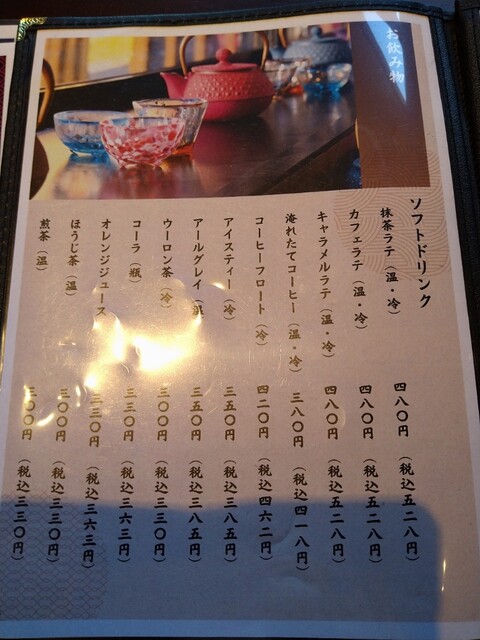 お飲み物
ソフトドリンク
抹茶ラテ（温・冷） 四八〇円（税込五二八円）
カフェラテ（温・冷） 四八〇円（税込五二八円）
キャラメルラテ（温・冷） 四八〇円（税込五二八円）
淹れたてコーヒー（温・冷） 三八〇円（税込四一八円）
コーヒーフロート（冷） 四二〇円（税込四六二円）
アイスティー（冷） 三五〇円（税込三八五円）
アールグレイ（温） 三五〇円（税込三八五円）
ウーロン茶（冷） 三〇〇円（税込三三〇円）
コーラ（瓶） 三三〇円（税込三六三円）
オレンジジュース 三三〇円（税込三六三円）
ほうじ茶（温） 三〇〇円（税込三三〇円）
煎茶（温） 三〇〇円（税込三三〇円）